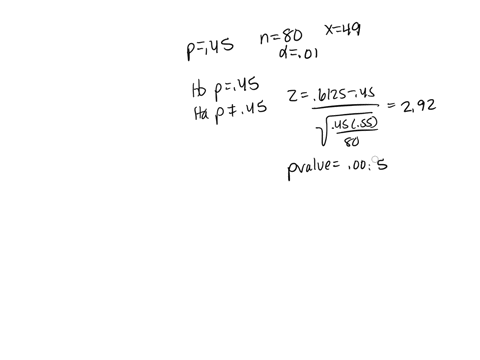 p=.45 n=80 x=49
α=.01
Ho p=.45
Ha p≠.45
z = .6125-.45 / √(.45(.55)/80) = 2.92
pvalue= .00